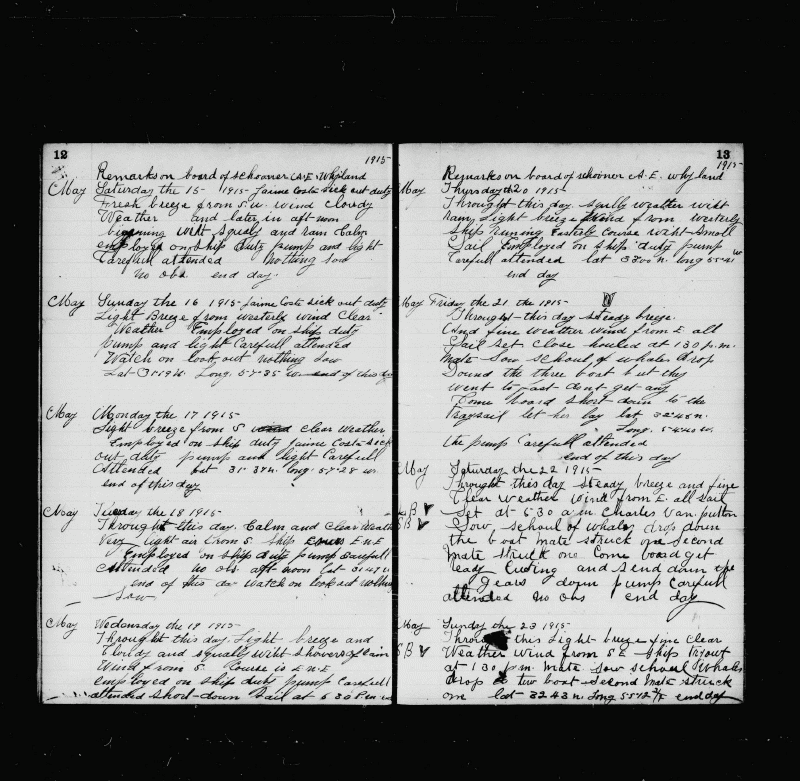 12
1915
Remarks on board of schooner A.E. Whyland
May Saturday the 15 1915 Jaime Costa sick out duty
Fresh breeze from S.W. wind cloudy
Weather and later in aft noon
biginning wiht Squaly and rain Calm
employed on ship duty pump and light
Carefull attended Nothing sow
No obs end day.
May Sunday the 16 1915 Jaime Costa sick out duty
Light Breeze from westerly wind Clear
Weather Employed on ship duty
Pump and light Carefull attended
Watch on look out nothing sow
Lat 31 19 N. Long. 57-35 W. end of this day
May Monday the 17 1915
Light breeze from S clear Weather
Employed on ship duty Jaime Costa sick
out duty pump and light Carefull
Attended Lat 31-37 N. long. 57-28 W.
end of this day
May Tuesday the 18 1915
Throught this day. Calm and Clear Weather
Very light air from S. Ship E N E
Employed on ship duty pump carefull
Attended no obs aft noon Lat 31-47 N
end of this day watch on look out nothing
Sow
May Wednesday the 19 1915
Throught this day. Light breeze and
Cloudy and squally wiht showers of rain
Wind from S Course is E N E
employed on ship duty pump Carefull
attended short-down sail at 6 30 P.m
13
1915
Remarks on board of schooner A. E. whyland
May Thursday th 20 1915
Throught this day sqully weather wiht
rain, Light breeze wind from westerly
Ship runing Easterly course wiht small
Sail Employed on ship duty pump
Carefull attended Lat 33 00 N. long 55-41 W
end day
May Friday the 21 the 1915
Throught this day steady breeze.
And fine weather wind from E all
Sail set close houled at 1 30 p.m.
Mate Sow schoul of whales drop
Dound the three boat but they
went to fast dont get any
Come board short down to the
trysail let her lay lat 32 48 N.
Long. 54 40 W.
the pump Carefull attended
end of this day
May Saturday the 22 1915
Throught this day steady breeze and fine
Clear Weather wind from E. all sail
Set at 6,30 a.m Charles Van putton
SB Sow, schoul of whales drop down
the boat mate struck one second
mate struck one Come board get
ready Cuting and send down the
gears down pump Carefull
attended No obs end day
May Sunday the 23 1915
Throught this Light breeze fine Clear
SB Weather wind from S E Ship tryout
at 1 30 p.m. Mate Sow schoul whales
drop two boat second mate struck
one lat 32 43 N. Long 55 12 W end day